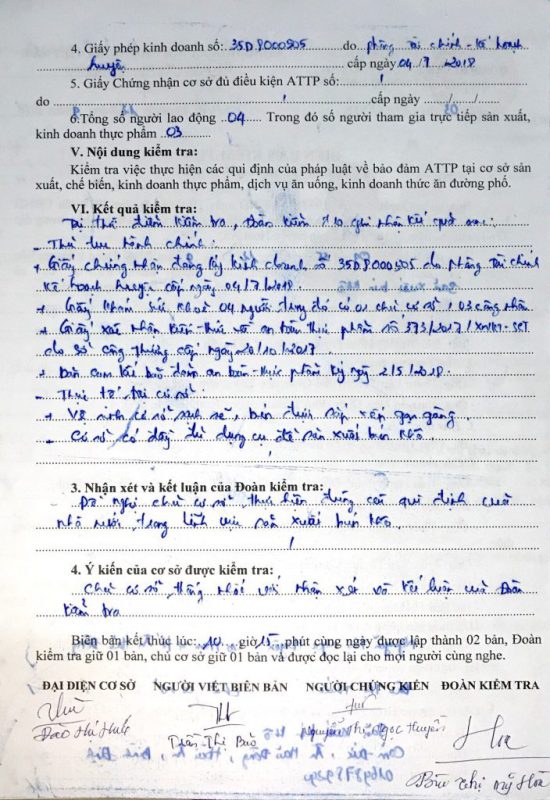 4. Giấy phép kinh doanh số: 35D8000505 do phòng Tài chính - Kế hoạch
huyện cấp ngày 04/7/2018
5. Giấy Chứng nhận cơ sở đủ điều kiện ATTP số: /
do / cấp ngày ..../..../....
6.Tổng số người lao động ..04.. Trong đó số người tham gia trực tiếp sản xuất,
kinh doanh thực phẩm .03
V. Nội dung kiểm tra:
Kiểm tra việc thực hiện các qui định của pháp luật về bảo đảm ATTP tại cơ sở sản
xuất, chế biến, kinh doanh thực phẩm, dịch vụ ăn uống, kinh doanh thức ăn đường phố.
VI. Kết quả kiểm tra:
Tại thời điểm kiểm tra, Đoàn kiểm tra ghi nhận kết quả sau:
- Thủ tục hành chính:
+ Giấy chứng nhận đăng ký kinh doanh số 35D8000505 do phòng Tài chính
Kế hoạch huyện cấp ngày 04/7/2018.
+ Giấy khám sức khoẻ 04 người trong đó có 01 chủ cơ sở, 03 công nhân
+ Giấy xác nhận kiến thức về an toàn thực phẩm số 373/2017/XNKT-SCT
do Sở Công Thương cấp ngày 20/10/2017.
+ Bản cam kết bảo đảm an toàn thực phẩm ký ngày 2/5/2018.
- Thực tế tại cơ sở:
+ Vệ sinh cơ sở sạch sẽ, sắp xếp gọn gàng.
- Cơ sở có đầy đủ dụng cụ để sản xuất bún khô.
3. Nhận xét và kết luận của Đoàn kiểm tra:
Đề nghị chủ cơ sở thực hiện đúng các qui định của
nhà nước trong lĩnh vực sản xuất bún khô.
/
4. Ý kiến của cơ sở được kiểm tra:
Chủ cơ sở thống nhất với nhận xét và kết luận của Đoàn
kiểm tra
Biên bản kết thúc lúc: 10 giờ 15 phút cùng ngày được lập thành 02 bản, Đoàn
kiểm tra giữ 01 bản, chủ cơ sở giữ 01 bản và được đọc lại cho mọi người cùng nghe.
ĐẠI DIỆN CƠ SỞ NGƯỜI VIẾT BIÊN BẢN NGƯỜI CHỨNG KIẾN ĐOÀN KIỂM TRA
Trần Thị Bảo Nguyễn Thị Ngọc Huyền
Bùi Thị Mỹ Hoà